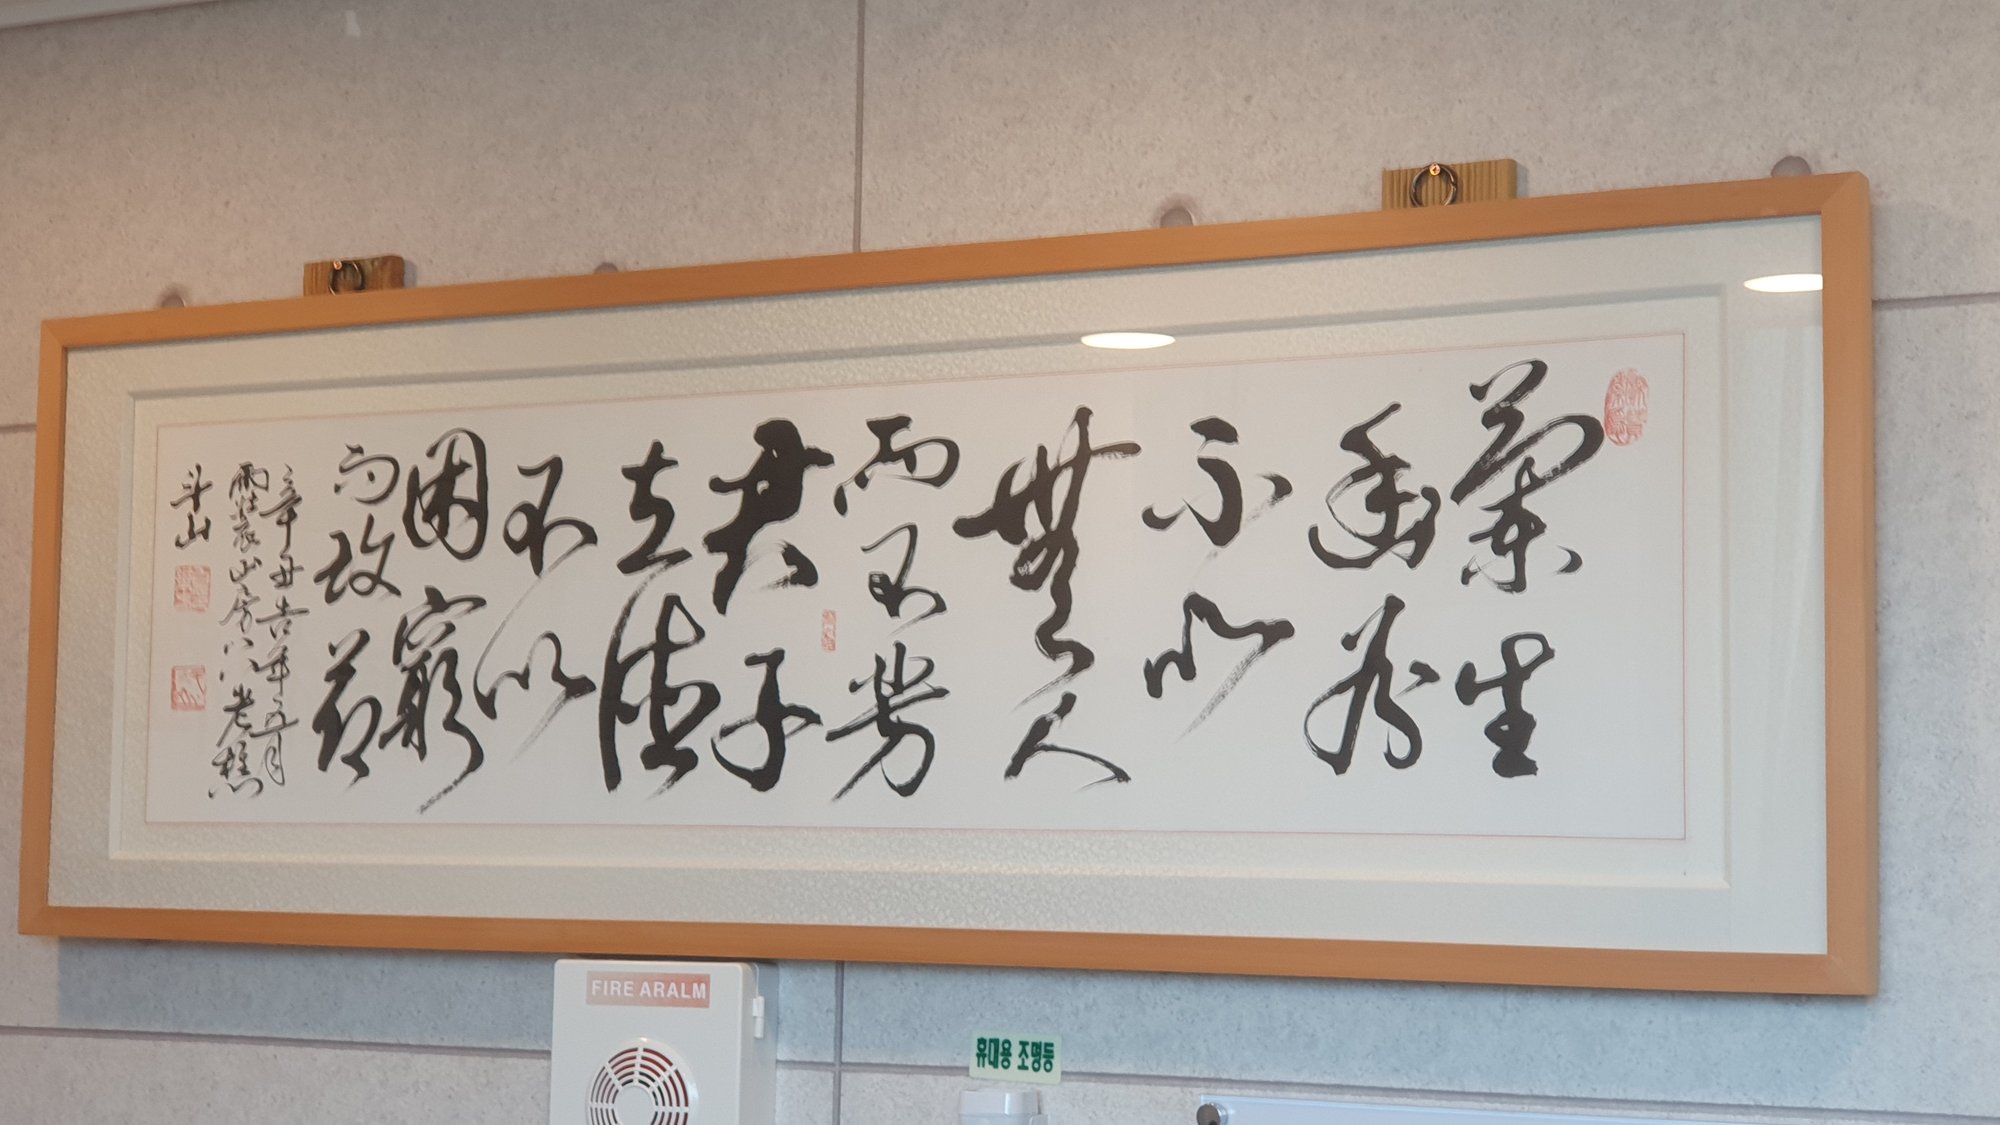 蘭生
幽
不以
無人
而不芳
君子
立德
不以
困窮
而改節
辛丑吉年五月
山房八八老樵
斗山
FIRE ARALM
휴대용 조명등